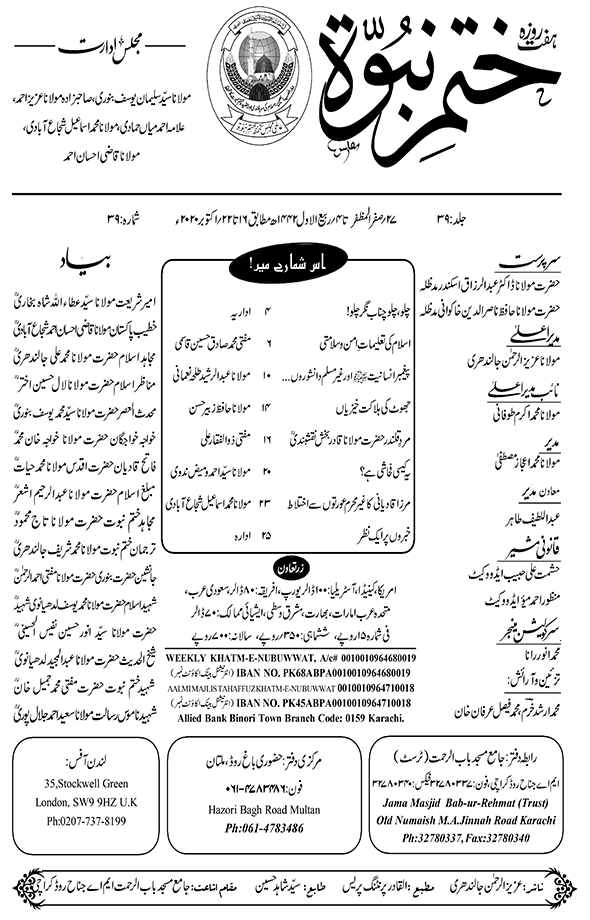 ہفت روزہ
ختم نبوۃ
مجلس ادارت
مولانا سیّد سلیمان یوسف بنوری، صاحبزادہ مولانا عزیز احمد،
علامہ احمد میاں حمادی، مولانا محمد اسماعیل شجاع آبادی،
مولانا قاضی احسان احمد
جلد: ۳۹
۲۷؍صفر المظفر تا ۴؍ربیع الاول ۱۴۴۲ھ مطابق ۱۶ تا ۲۲؍اکتوبر ۲۰۲۰ء
شمارہ: ۳۹
سرپرست
حضرت مولانا ڈاکٹر عبدالرزاق اسکندر مدظلہ
حضرت مولانا حافظ ناصر الدین خاکوانی مدظلہ
مدیر اعلیٰ
مولانا عزیز الرحمٰن جالندھری
نائب مدیر اعلیٰ
مولانا محمد اکرم طوفانی
مدیر
مولانا محمد اعجاز مصطفیٰ
معاون مدیر
عبداللطیف طاہر
قانونی مشیر
حشمت علی حبیب ایڈووکیٹ
منظور احمد میؤ ایڈووکیٹ
سرکولیشن منیجر
محمد انور رانا
تزئین و آرائش:
محمد ارشد خرم، محمد فیصل عرفان خان
اس شمارے میں!
چلو، چلو چناب نگر چلو! ۴ اداریہ
اسلام کی تعلیماتِ امن و سلامتی ۶ مفتی محمد صادق حسین قاسمی
پیغمبر انسانیت ﷺ اور غیر مسلم دانشوروں... ۱۰ مولانا عبدالرشید طلحہ نعمانی
جھوٹ کی ہلاکت خیزیاں ۱۴ مولانا حافظ زبیر حسن
مردِ قلندر حضرت مولانا قادر بخش نقشبندیؒ ۱۶ مفتی ذوالفقار علی
یہ کیسی فاشی ہے؟ ۲۰ مولانا سید احمد ومیض ندوی
مرزا قادیانی کا غیر محرم عورتوں سے اختلاط ۲۳ مولانا محمد اسماعیل شجاع آبادی
خبروں پر ایک نظر ۲۵ ادارہ
زر تعاون
امریکا، کینیڈا، آسٹریلیا: ۱۰۰ ڈالر یورپ، افریقہ: ۸۰ ڈالر سعودی عرب،
متحدہ عرب امارات، بھارت، مشرق وسطیٰ، ایشیائی ممالک: ۷۰ ڈالر
فی شمارہ ۱۵ روپے، ششماہی: ۳۵۰ روپے، سالانہ: ۷۰۰ روپے
WEEKLY KHATM-E-NUBUWWAT, A/c# 0010010964680019
IBAN NO. PK68ABPA0010010964680019 (انٹرنیشنل بینک اکاؤنٹ نمبر)
AALMI MAJLIS TAHAFFUZ KHATM-E-NUBUWWAT 0010010964710018
IBAN NO. PK45ABPA0010010964710018 (انٹرنیشنل بینک اکاؤنٹ نمبر)
Allied Bank Binori Town Branch Code: 0159 Karachi.
بیاد
امیر شریعت مولانا سیّد عطاء اللہ شاہ بخاریؒ
خطیب پاکستان مولانا قاضی احسان احمد شجاع آبادیؒ
مجاہد اسلام حضرت مولانا محمد علی جالندھریؒ
مناظر اسلام حضرت مولانا لال حسین اخترؒ
محدث العصر حضرت مولانا سیّد محمد یوسف بنوریؒ
خواجہ خواجگان حضرت مولانا خواجہ خان محمدؒ
فاتح قادیان حضرت اقدس مولانا محمد حیاتؒ
مبلغ اسلام حضرت مولانا عبدالرحیم اشعرؒ
مجاہد ختم نبوت حضرت مولانا تاج محمودؒ
ترجمان ختم نبوت مولانا محمد شریف جالندھریؒ
جانشین حضرت بنوری حضرت مولانا مفتی احمد الرحمٰنؒ
شہید اسلام حضرت مولانا محمد یوسف لدھیانوی شہیدؒ
حضرت مولانا سیّد انور حسین نفیس الحسینیؒ
شیخ الحدیث حضرت مولانا عبدالمجید لدھیانویؒ
شہید ختم نبوت حضرت مفتی محمد جمیل خانؒ
شہید ناموس رسالت مولانا سعید احمد جلال پوریؒ
رابطہ دفتر: جامع مسجد باب الرحمت (ٹرسٹ)
ایم اے جناح روڈ کراچی، فون: ۳۲۷۸۰۳۳۷ فیکس: ۳۲۷۸۰۳۴۰
Jama Masjid Bab-ur-Rehmat (Trust)
Old Numaish M.A.Jinnah Road Karachi
Ph:32780337, Fax:32780340
مرکزی دفتر: حضوری باغ روڈ، ملتان
فون: ۰۶۱-۴۷۸۳۴۸۶
Hazori Bagh Road Multan
Ph:061-4783486
لندن آفس:
35,Stockwell Green
London, SW9 9HZ U.K
Ph:0207-737-8199
عزیز الرحمٰن جالندھری مطبع: القادر پرنٹنگ پریس طابع: سیّد شاہد حسین مقام اشاعت: جامع مسجد باب الرحمت ایم اے جناح روڈ کراچی